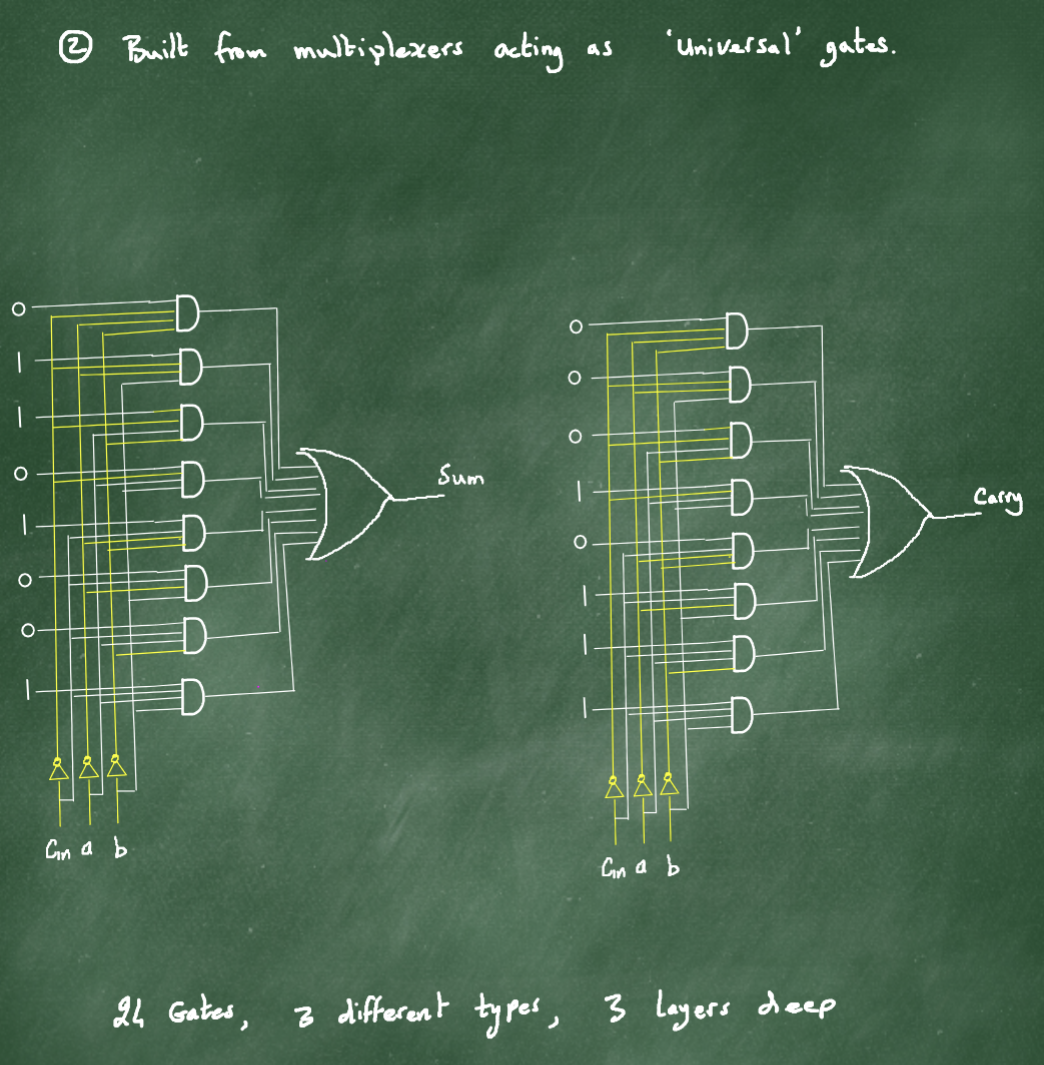 ② Built from multiplexers acting as 'universal' gates.
0
1
1
0
1
0
0
1
Sum
Cin a b
0
0
0
1
0
1
1
1
Carry
Cin a b
24 Gates, 3 different types, 3 layers deep